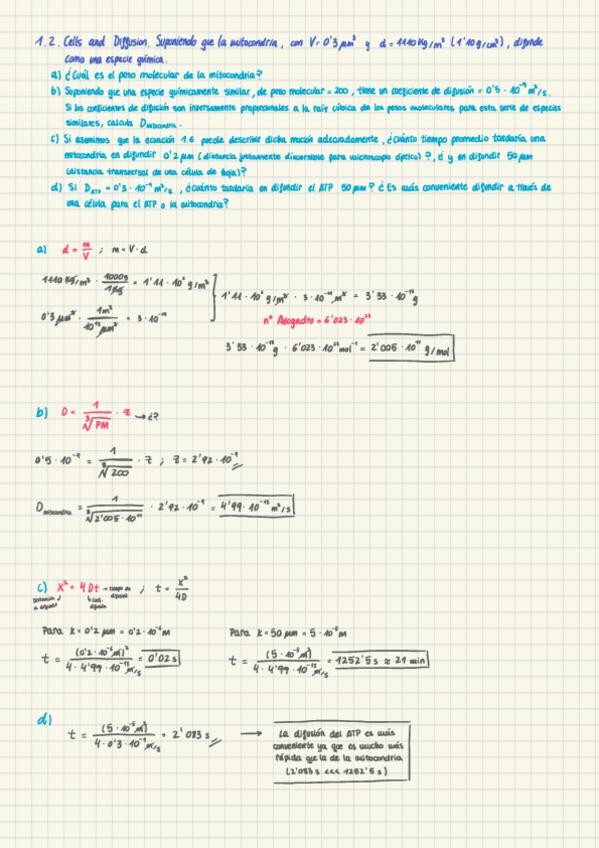 1.2. Cells and Diffusion. Suponiendo que la mitocondria, con V=0'3 μm³ y d=1110 Kg/m³ (1'10 g/cm³), difunde
como una especie química.
a) ¿Cuál es el peso molecular de la mitocondria?
b) Suponiendo que una especie químicamente similar, de peso molecular = 200, tiene un coeficiente de difusión = 0'5 · 10⁻⁹ m²/s.
Si los coeficientes de difusión son inversamente proporcionales a la raíz cúbica de los pesos moleculares para esta serie de especies
similares, calcula D mitocondria.
c) Si asumimos que la ecuación 1.6 puede describir dicha moción adecuadamente, ¿cuánto tiempo promedio tardaría una
mitocondria en difundir 0'2 μm (distancia justamente discernible para microscopio óptico)?, ¿y en difundir 50 μm
(distancia transversal de una célula de )?
d) Si D ATP = 0'3 · 10⁻⁹ m²/s, ¿cuánto tardaría en difundir el ATP 50 μm? ¿Es más conveniente difundir a través de
una célula para el ATP o la mitocondria?
a) d = m/V ; m = V · d
1110 Kg/m³ · 1000g/1Kg = 1'11 · 10⁶ g/m³
0'3 μm³ · 1m³/10¹⁸ μm³ = 3 · 10⁻¹⁹
1'11 · 10⁶ g/m³ · 3 · 10⁻¹⁹ m³ = 3'33 · 10⁻¹³ g
nº Avogadro = 6'023 · 10²³
3'33 · 10⁻¹³ g · 6'023 · 10²³ mol⁻¹ = 2'005 · 10¹¹ g/mol
b) D = 1/∛PM · z → ¿?
0'5 · 10⁻⁹ = 1/∛200 · z ; z = 2'92 · 10⁻⁹
D mitocondria = 1/∛2'005 · 10¹¹ · 2'92 · 10⁻⁹ = 4'99 · 10⁻¹³ m²/s
c) x² = 4Dt → tiempo de difusión ; t = x²/4D
Para x = 0'2 μm = 0'2 · 10⁻⁶ m
Para x = 50 μm = 5 · 10⁻⁵ m
t = (0'2 · 10⁻⁶ m)²/4 · 4'99 · 10⁻¹³ m²/s = 0'02 s
t = (5 · 10⁻⁵ m)²/4 · 4'99 · 10⁻¹³ m²/s = 1252'5 s ≈ 21 min
d) t = (5 · 10⁻⁵ m)²/4 · 0'3 · 10⁻⁹ m²/s = 2'083 s →
La difusión del ATP es más
conveniente ya que es mucho más
rápida que la de la mitocondria
(2'083 s <<< 1252'5 s)